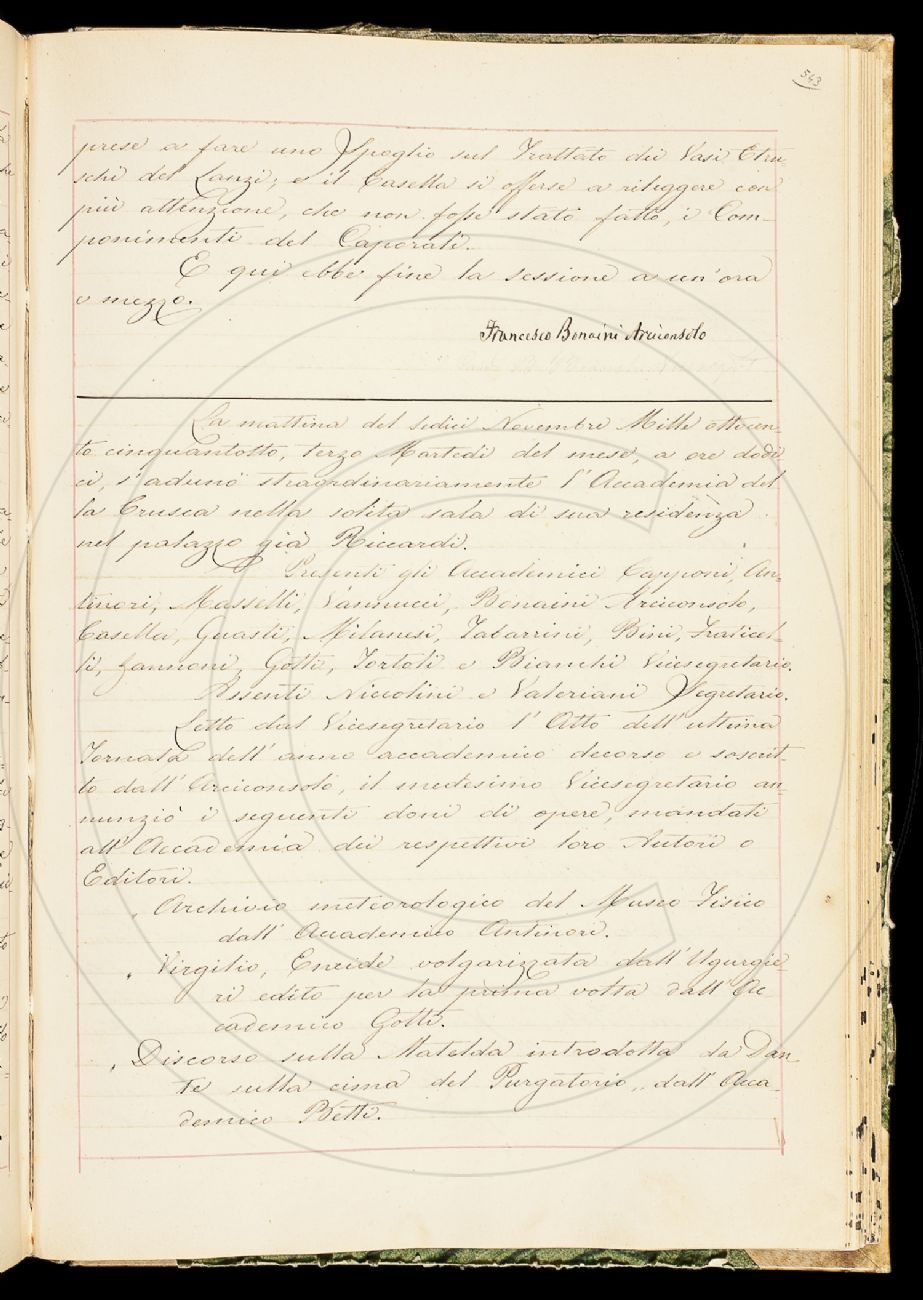 543
prese a fare uno Spoglio sul Trattato dei Vasi Etru
schi del Lanzi; e il Casella si offerse a rileggere con
più attenzione, che non fosse stato fatto, i Com-
ponimenti del Caporali.
E qui ebbe fine la sessione a un'ora
e mezzo.
Francesco Bonaini Arciconsolo
La mattina del sedici Novembre Mille ottocen-
to cinquantotto, terzo Martedì del mese, a ore dodi
ci, s'adunò straordinariamente l'Accademia del
la Crusca nella solita sala di sua residenza
nel palazzo già Riccardi.
Presenti gli Accademici Capponi, An-
tinori, Masselli, Vannucci, Bonaini Arciconsolo,
Casella, Guasti, Milanesi, Tabarrini, Bini, Fraticel-
li, Zannoni, Gotti, Tortoli e Bianchi Vicesegretario.
Assenti Niccolini e Valeriani Segretario.
Letto dal Vicesegretario l'Atto dell'ultima
Tornata dell'anno accademico decorso e soscrit-
to dall'Arciconsolo, il medesimo Vicesegretario an-
nunziò i seguenti doni di opere, mandati
all'Accademia dei respettivi loro Autori o
Editori.
Archivio meteorologico del Museo Fisico
dall'Accademico Antinori.
Virgilio, Eneide volgarizzata dall'Ugurgie
ri edito per la prima volta dall'Ac
cademico Gotti.
Discorso sulla Matelda introdotta da Dan
te sulla cima del Purgatorio, dall'Acca-
demico Betti.